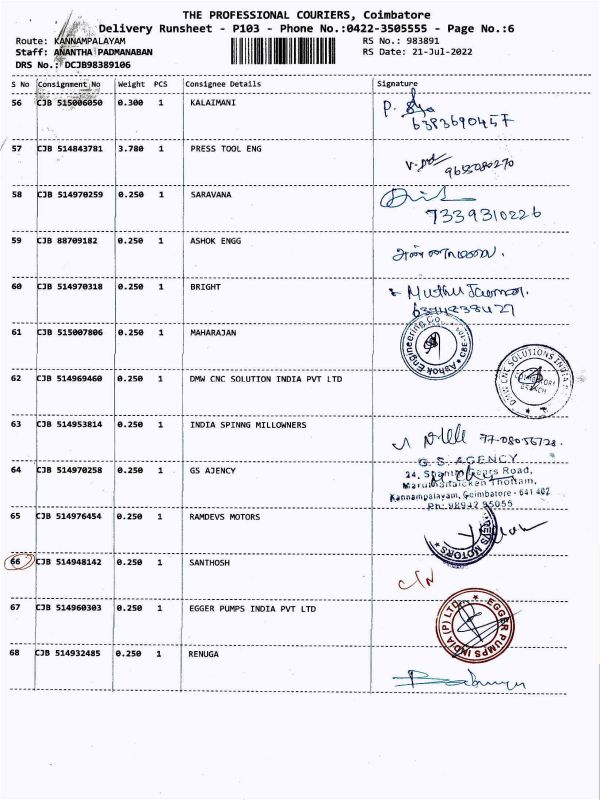 THE PROFESSIONAL COURIERS, Coimbatore
Delivery Runsheet - P103 - Phone No.:0422-3505555 - Page No.:6
Route: KANNAMPALAYAM RS No.: 983891
Staff: ANANTHA PADMANABAN RS Date: 21-Jul-2022
DRS No.: DCJB98389106
S No Consignment No Weight PCS Consignee Details Signature
56 CJB 515006050 0.300 1 KALAIMANI P.
6383690457
57 CJB 514843781 3.780 1 PRESS TOOL ENG
9653080270
58 CJB 514970259 0.250 1 SARAVANA
7339310226
59 CJB 88709182 0.250 1 ASHOK ENGG
60 CJB 514970318 0.250 1 BRIGHT Muthu
6374838427
61 CJB 515007806 0.250 1 MAHARAJAN Ashok Engineering Co. CBE
62 CJB 514969460 0.250 1 DMW CNC SOLUTION INDIA PVT LTD DMW CNC SOLUTIONS INDIA
COIMBATORE
BRANCH
63 CJB 514953814 0.250 1 INDIA SPINNG MILLOWNERS
77-08056728.
64 CJB 514970258 0.250 1 GS AJENCY G.S. AGENCY
24, Road,
Thottam,
Kannampalayam, Coimbatore - 641 402
Ph: 98942 95055
65 CJB 514976454 0.250 1 RAMDEVS MOTORS MOTORS
66 CJB 514948142 0.250 1 SANTHOSH C/N
67 CJB 514960303 0.250 1 EGGER PUMPS INDIA PVT LTD EGGER PUMPS INDIA (P) LTD.
68 CJB 514932485 0.250 1 RENUGA